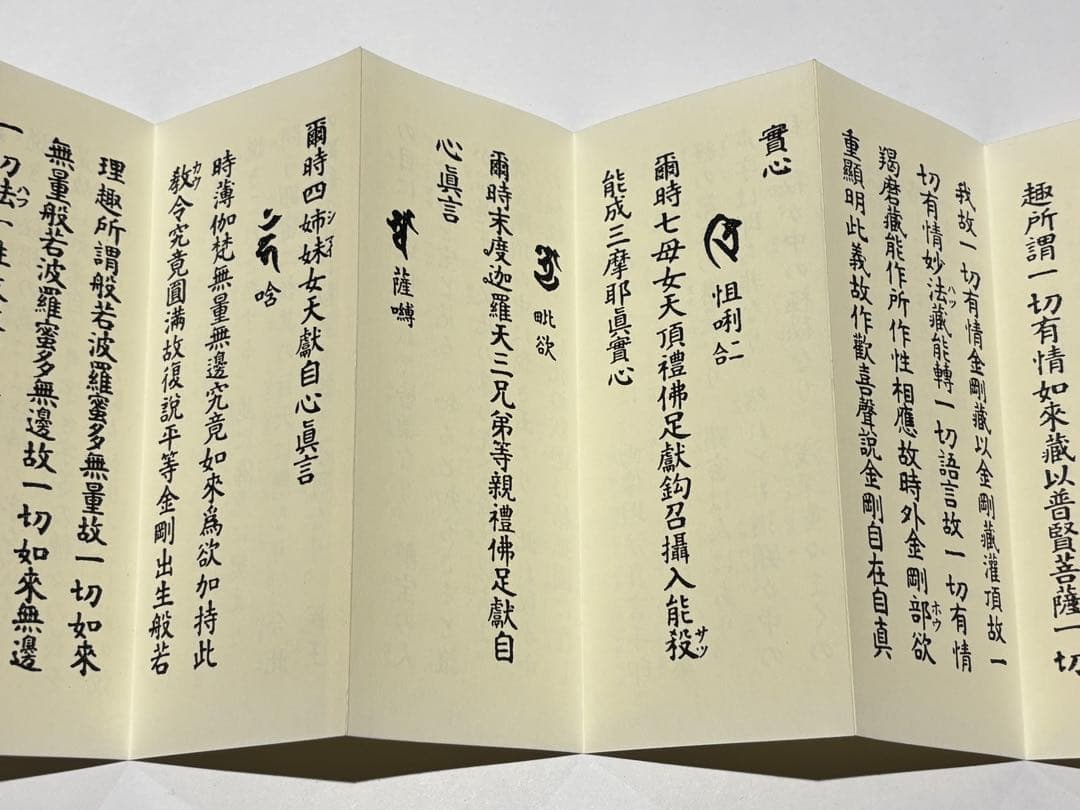 趣所謂一切有情如來藏以普賢菩薩一切
我故一切有情金剛藏以金剛藏灌頂故一
切有情妙法藏能轉一切語言故一切有情
ハツ
羯磨藏能作所作性相應故時外金剛部欲
ホウ
重顯明此義故作歡喜聲說金剛自在自真
實心
怛唎二合
爾時七母女天頂禮佛足獻鈎召攝入能殺
サツ
能成三摩耶眞實心
毗欲
爾時末度迦羅天三兄弟等親禮佛足獻自
心眞言
薩嚩
爾時四姊妹女天獻自心眞言
唅
時薄伽梵無量無邊究竟如來爲欲加持此
教令究竟圓滿故復說平等金剛出生般若
カウ
理趣所謂般若波羅蜜多無量故一切如來
無量般若波羅蜜多無邊故一切如來無邊
一切法一性